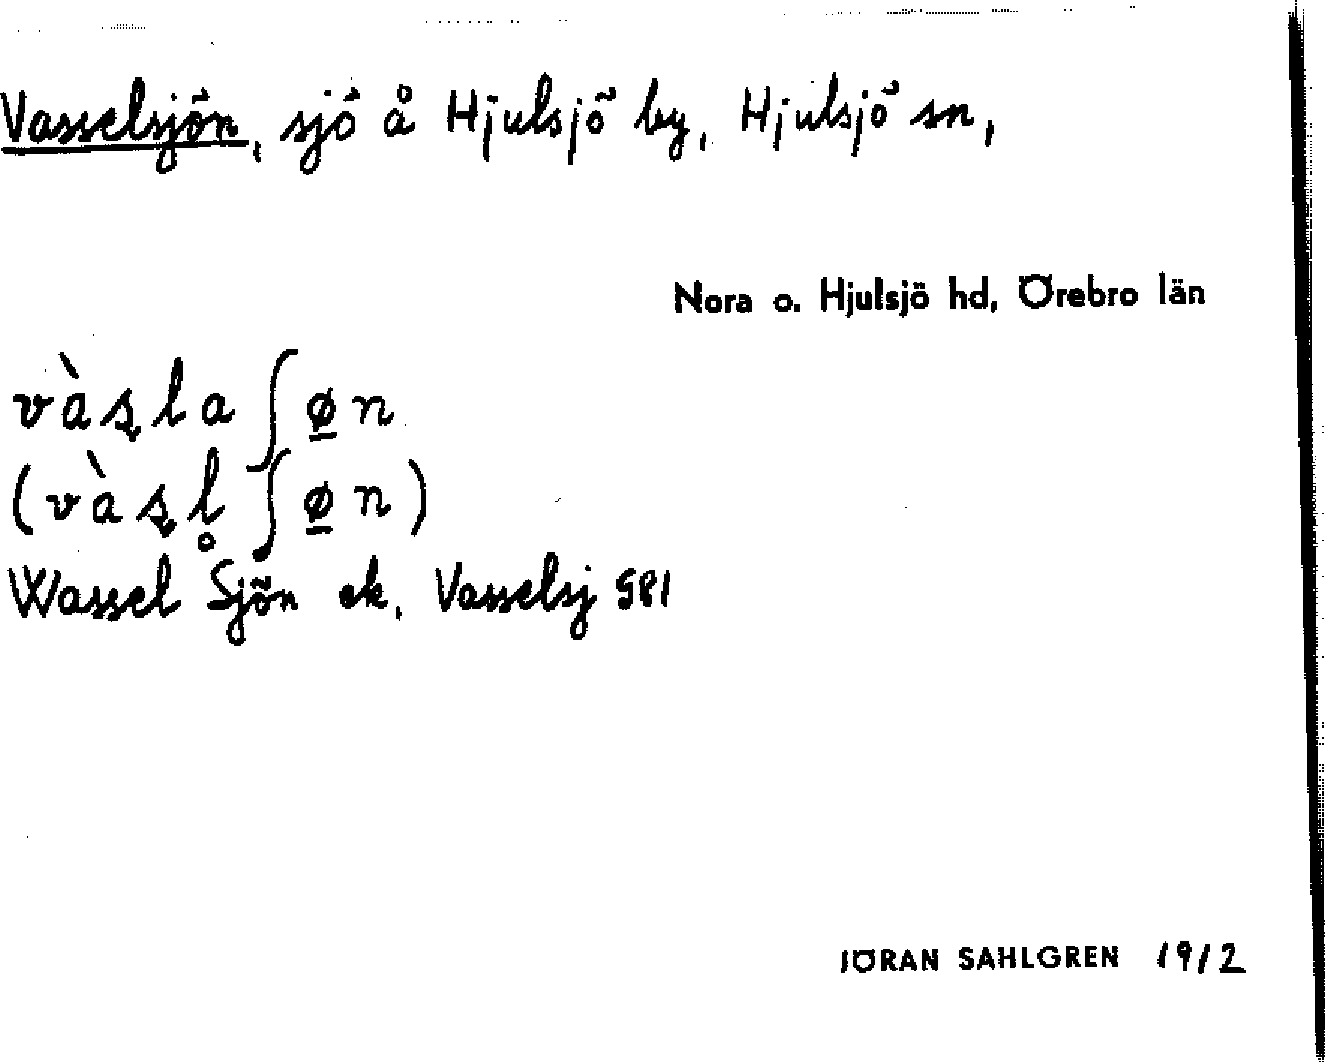 Vasselsjön, sjö å Hjulsjö by, Hjulsjö sn,
Nora o. Hjulsjö hd, Örebro län
vàʂla ʃø̱n
(vàʂl̥ ʃø̱n)
Wassel Sjön ek, Vasselsj GSI
JÖRAN SAHLGREN 1912